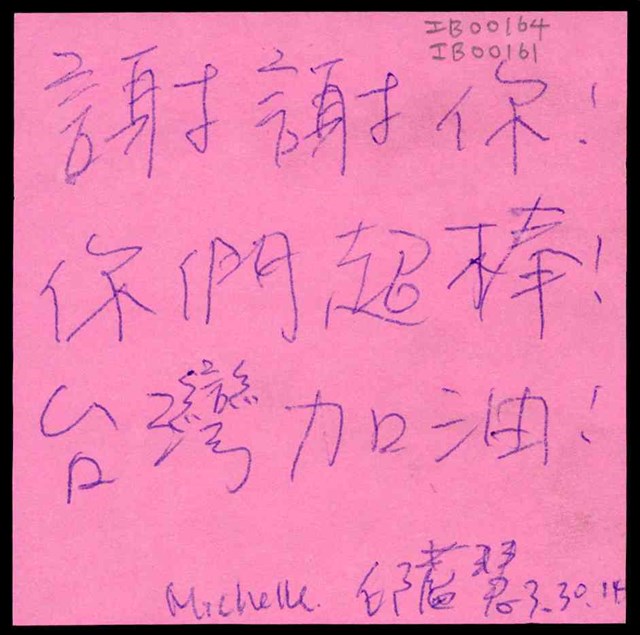 IB00164
IB00161
謝謝你!
你們超棒!
台灣加油!
Michelle. 邱 3.30.14